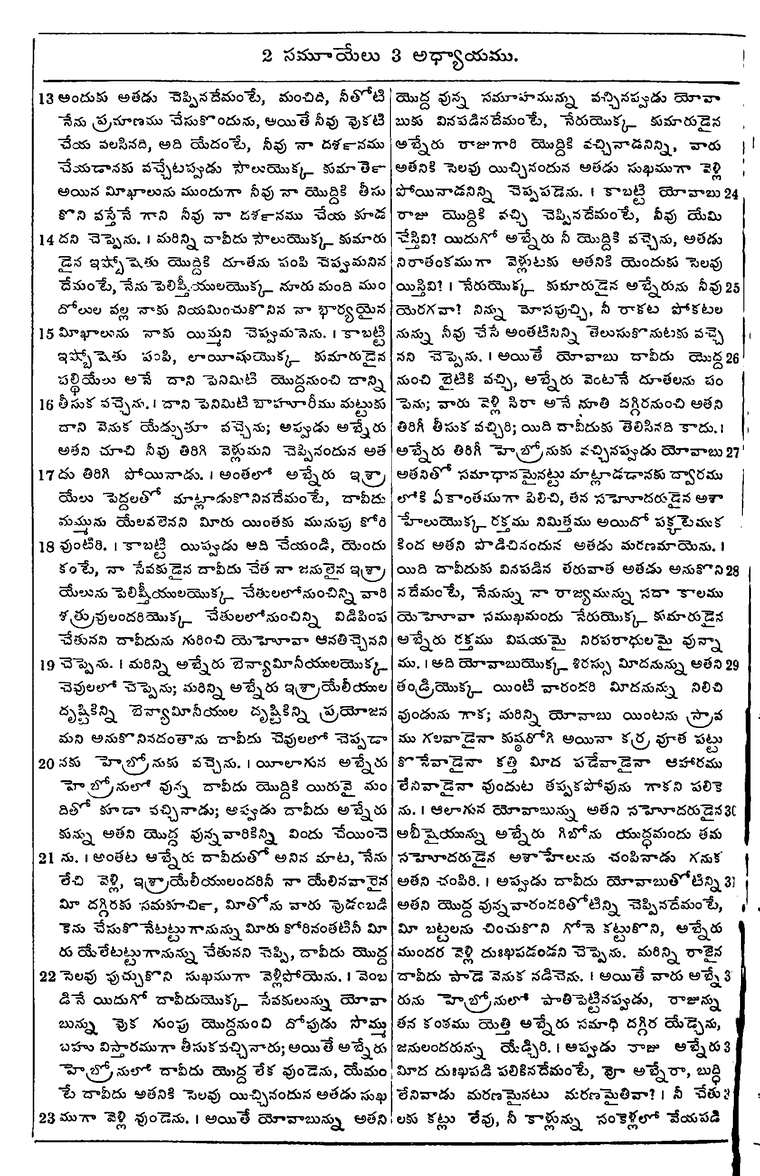 2 సమూయేలు 3 అధ్యాయము.
13 అందుకు అతడు చెప్పినదేమంటే, మంచిది, నీతోటి
నేను ప్రమాణము చేసుకొందును, అయితే నీవు వొకటి
చేయ వలసినది, అది యేదంటే, నీవు నా దర్శనము
చేయడానకు వచ్చేటప్పుడు సౌలుయొక్క కుమార్తె
అయిన మీఖాలును ముందుగా నీవు నా యొద్దికి తీసు
కొని వస్తేనే గాని నీవు నా దర్శనము చేయ కూడ
14 దని చెప్పెను. । మరిన్ని దావీదు సౌలుయొక్క కుమారు
డైన ఇష్బోషెతు యొద్దికి దూతను పంపి చెప్పుమనిన
దేమంటే, నేను పెలిష్తీయులయొక్క నూరు మంది ముం
దోలుల వల్ల నాకు నియమించుకొనిన నా భార్యయైన
15 మీఖాలును నాకు యిమ్మని చెప్పుమనెను. । కాబట్టి
ఇష్బోషెతు పంపి, లాయీషుయొక్క కుమారుడైన
పల్థియేలు అనే దాని పెనిమిటి యొద్దనుంచి దాన్ని
16 తీసుక వచ్చెను. । దాని పెనిమిటి బాహురీము మట్టుకు
దాని వెనుక యేడ్చుతూ వచ్చెను; అప్పుడు అబ్నేరు
అతని చూచి నీవు తిరిగి వెళ్లుమని చెప్పినందున అత
17 దు తిరిగి పోయినాడు. । అంతలో అబ్నేరు ఇశ్రా
యేలు పెద్దలతో మాట్లాడుకొనినదేమంటే, దావీదు
మమ్మును యేలవలెనని మీరు యింతకు మునుపు కోరి
18 వుంటిరి. । కాబట్టి యిప్పుడు అది చేయండి, యెందు
కంటే, నా సేవకుడైన దావీదు చేత నా జనులైన ఇశ్రా
యేలును పెలిష్తీయులయొక్క చేతులలోనుంచిన్ని వారి
శత్రువులందరియొక్క చేతులలోనుంచిన్ని విడిపింప
చేతునని దావీదును గురించి యెహోవా ఆనతిచ్చెనని
19 చెప్పెను. । మరిన్ని అబ్నేరు బెన్యామీనీయులయొక్క
చెవులలో చెప్పెను; మరిన్ని అబ్నేరు ఇశ్రాయేలీయుల
దృష్టికిన్ని బెన్యామీనీయుల దృష్టికిన్ని ప్రయోజన
మని అనుకొనినదంతాను దావీదు చెవులలో చెప్పడా
20 నకు హెబ్రోనుకు వచ్చెను. । యీలాగున అబ్నేరు
హెబ్రోనులో వున్న దావీదు యొద్దికి యిరువై మం
దితో కూడా వచ్చినాడు; అప్పుడు దావీదు అబ్నేరు
కున్ను అతని యొద్ద వున్నవారికిన్ని విందు చేయించె
21 ను. । అంతట అబ్నేరు దావీదుతో అనిన మాట, నేను
లేచి వెళ్లి, ఇశ్రాయేలీయులందరినీ నా యేలినవాలైన
మీ దగ్గిరకు సమకూర్చి, మీతోను వారు వుడంబడి
కెను చేసుకొనేటట్టుగానున్ను మీరు కోరినంతటినీ మీ
రు యేలేటట్టుగానున్ను చేతునని చెప్పి, దావీదు యొద్ద
22 సెలవు పుచ్చుకొని సుఖముగా వెళ్లిపోయెను. । వెంబ
డినే యిదుగో దావీదుయొక్క సేవకులున్ను యోవా
బున్ను వొక గుంపు యొద్దనుంచి దోపుడు సొమ్ము
బహు విస్తారముగా తీసుకవచ్చినారు; అయితే అబ్నేరు
హెబ్రోనులో దావీదు యొద్ద లేక వుండెను, యేమం
టే దావీదు అతనికి సెలవు యిచ్చినందున అతడు సుఖ
23 ముగా వెళ్లి వుండెను. । అయితే యోవాబున్ను అతని
యొద్ద వున్న సమూహమున్ను వచ్చినప్పుడు యోవా
బుకు వినపడినదేమంటే, నేరుయొక్క కుమారుడైన
అబ్నేరు రాజుగారి యొద్దికి వచ్చినాడనిన్ని, వారు
అతనికి సెలవు యిచ్చినందున అతడు సుఖముగా వెళ్లి
పోయినాడనిన్ని చెప్పపడెను. । కాబట్టి యోవాబు 24
రాజు యొద్దికి వచ్చి చెప్పినదేమంటే, నీవు యేమి
చేస్తివి? యిదుగో అబ్నేరు నీ యొద్దికి వచ్చెను, అతడు
నిరాతంకముగా వెళ్లుటకు అతనికి యెందుకు సెలవు
యిస్తివి? । నేరుయొక్క కుమారుడైన అబ్నేరును నీవు 25
యెరగవా? నిన్ను మోసపుచ్చి, నీ రాకట పోకటల
నున్ను నీవు చేసే అంతటిసిన్ని తెలుసుకొనుటకు వచ్చె
నని చెప్పెను. । అయితే యోవాబు దావీదు యొద్ద 26
నుంచి బైటికి వచ్చి, అబ్నేరు వెంటనే దూతలను పం
పెను; వారు వెళ్లి సిరా అనే నూతి దగ్గిరనుంచి అతని
తిరిగీ తీసుక వచ్చిరి; యిది దావీదుకు తెలిసినది కాదు. ।
అబ్నేరు తిరిగీ హెబ్రోనుకు వచ్చినప్పుడు యోవాబు 27
అతనితో సమాధానమైనట్టు మాట్లాడడానకు ద్వారము
లోకి ఏకాంతముగా పిలిచి, తన సహోదరుడైన అశా
హేలుయొక్క రక్తము నిమిత్తము అయిదో పక్కటెముక
కింద అతని పొడిచినందున అతడు మరణమాయెను. ।
యిది దావీదుకు వినపడిన తరువాత అతడు అనుకొని 28
నదేమంటే, నేనున్ను నా రాజ్యమున్ను సదా కాలము
యెహోవా సముఖమందు నేరుయొక్క కుమారుడైన
అబ్నేరు రక్తము విషయమై నిరపరాధులమై వున్నా
ము. । అది యోవాబుయొక్క శిరస్సు మీదనున్ను అతని 29
తండ్రియొక్క యింటి వారందరి మీదనున్ను నిలిచి
వుండును గాక; మరిన్ని యోవాబు యింటను స్రావ
ము గలవాడైనా కుష్ఠరోగి అయినా కర్ర వూత పట్టు
కొనేవాడైనా కత్తి మీద పడేవాడైనా ఆహారము
లేనివాడైనా వుండుట తప్పకపోవును గాకని పలికె
ను. । ఆలాగున యోవాబున్ను అతని సహోదరుడైన 30
అబీషైయున్ను అబ్నేరు గిబోను యుద్ధమందు తమ
సహోదరుడైన అశాహేలును చంపినాడు గనుక
అతని చంపిరి. । అప్పుడు దావీదు యోవాబుతోటిన్ని 31
అతని యొద్ద వున్నవారందరితోటిన్ని చెప్పినదేమంటే,
మీ బట్టలను చించుకొని గోనె కట్టుకొని, అబ్నేరు
ముందర వెళ్లి దుఃఖపడండని చెప్పెను. మరిన్ని రాజైన
దావీదు పాడె వెనుక నడిచెను. । అయితే వారు అబ్నే 3
రును హెబ్రోనులో పాతిపెట్టినప్పుడు, రాజున్ను
తన కంఠము యెత్తి అబ్నేరు సమాధి దగ్గిర యేడ్చెను,
జనులందరున్ను యేడ్చిరి. । అప్పుడు రాజు అబ్నేరు 3
మీద దుఃఖపడి పలికినదేమంటే, హా అబ్నేరా, బుద్ధి
లేనివాడు మరణమైనటు మరణమైతివా? । నీ చేతు 3
లకు కట్లు లేవు, నీ కాళ్లున్ను సంకెళ్లలో వేయపడి